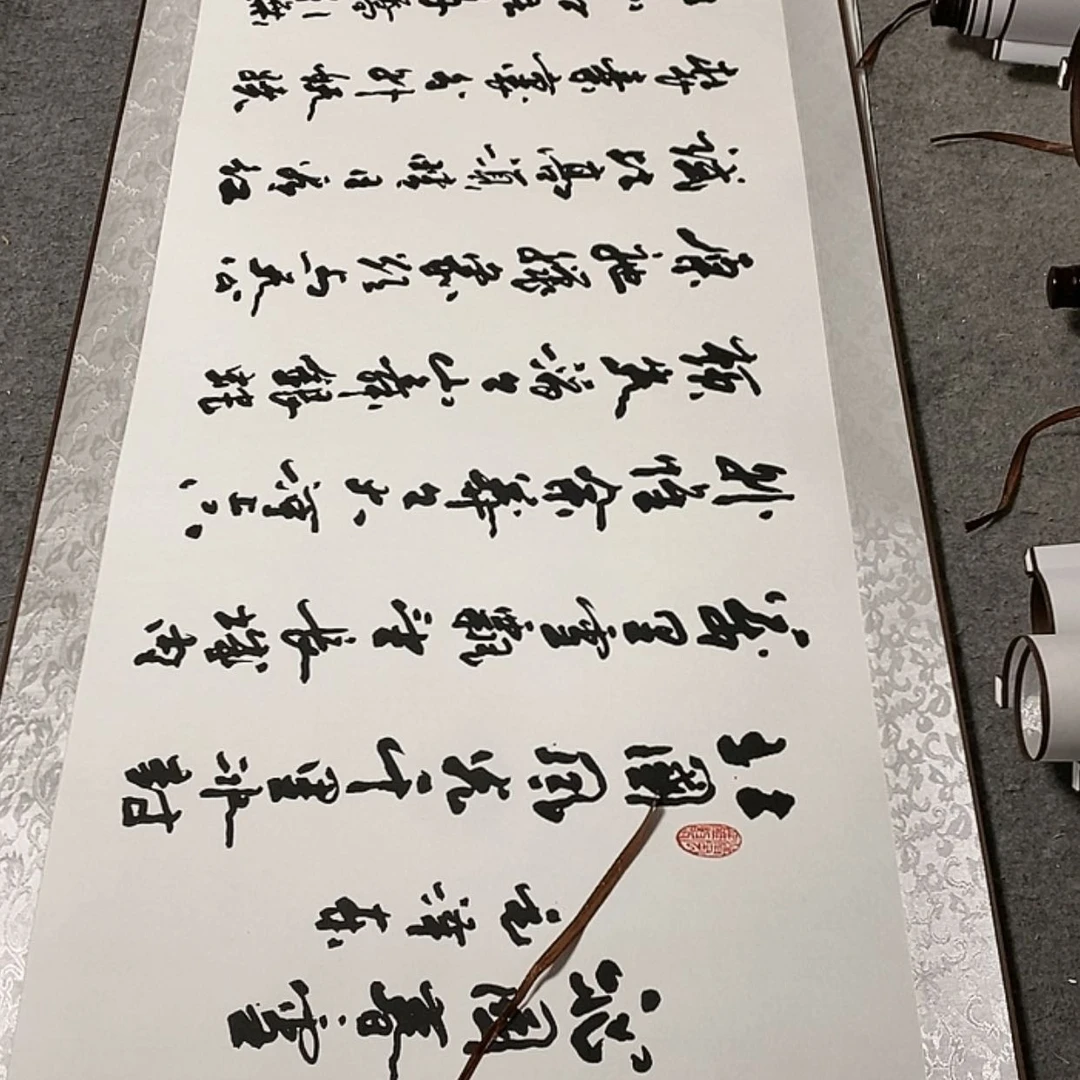 沁園春雪
毛澤东
北國風光千里冰封
萬里雪飘望長城内
外惟余莽々大河上下
頓失滔々山舞銀蛇
原馳蜡象欲与天公
試比高須晴日看红
装素裹分外妖娆